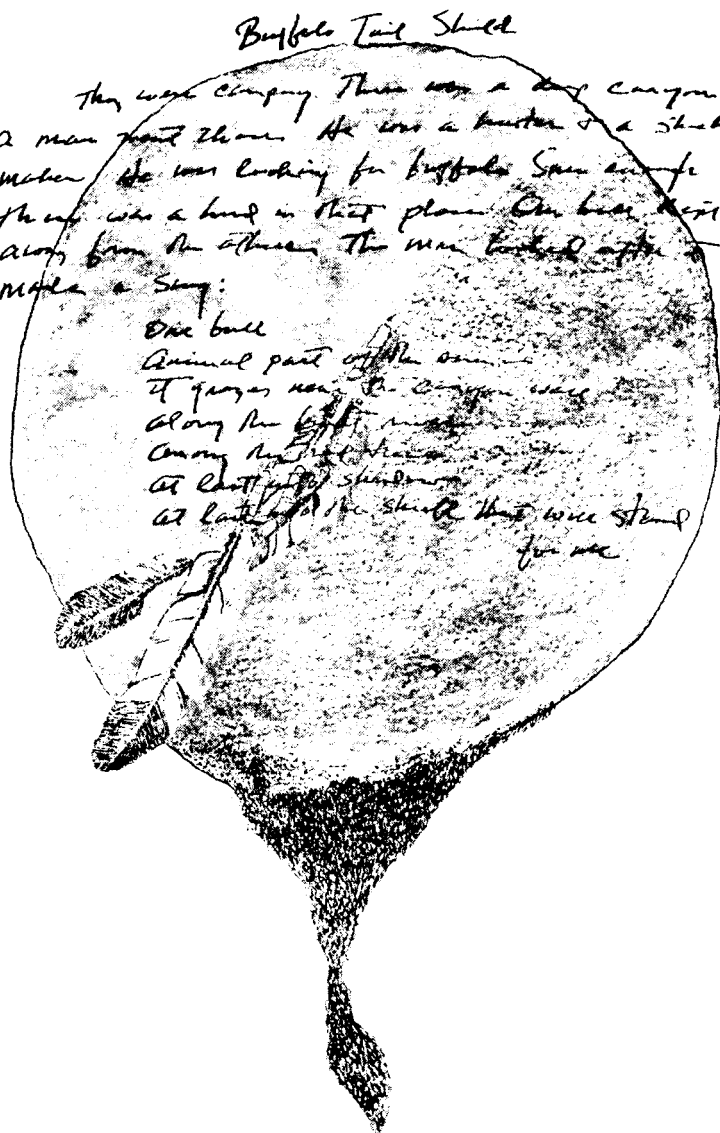 Buffalo Tail Shield
They were camping. There was a deep canyon
a man went there. He was a hunter & a shield
maker. He was looking for buffalo Sure enough
there was a herd in that place One bull kept
away from the others. The man looked after it
made a song:
One bull
Animal part of the
It grazes near the canyon wall
along the
among the
at last
at last the shield that will stand
for me.